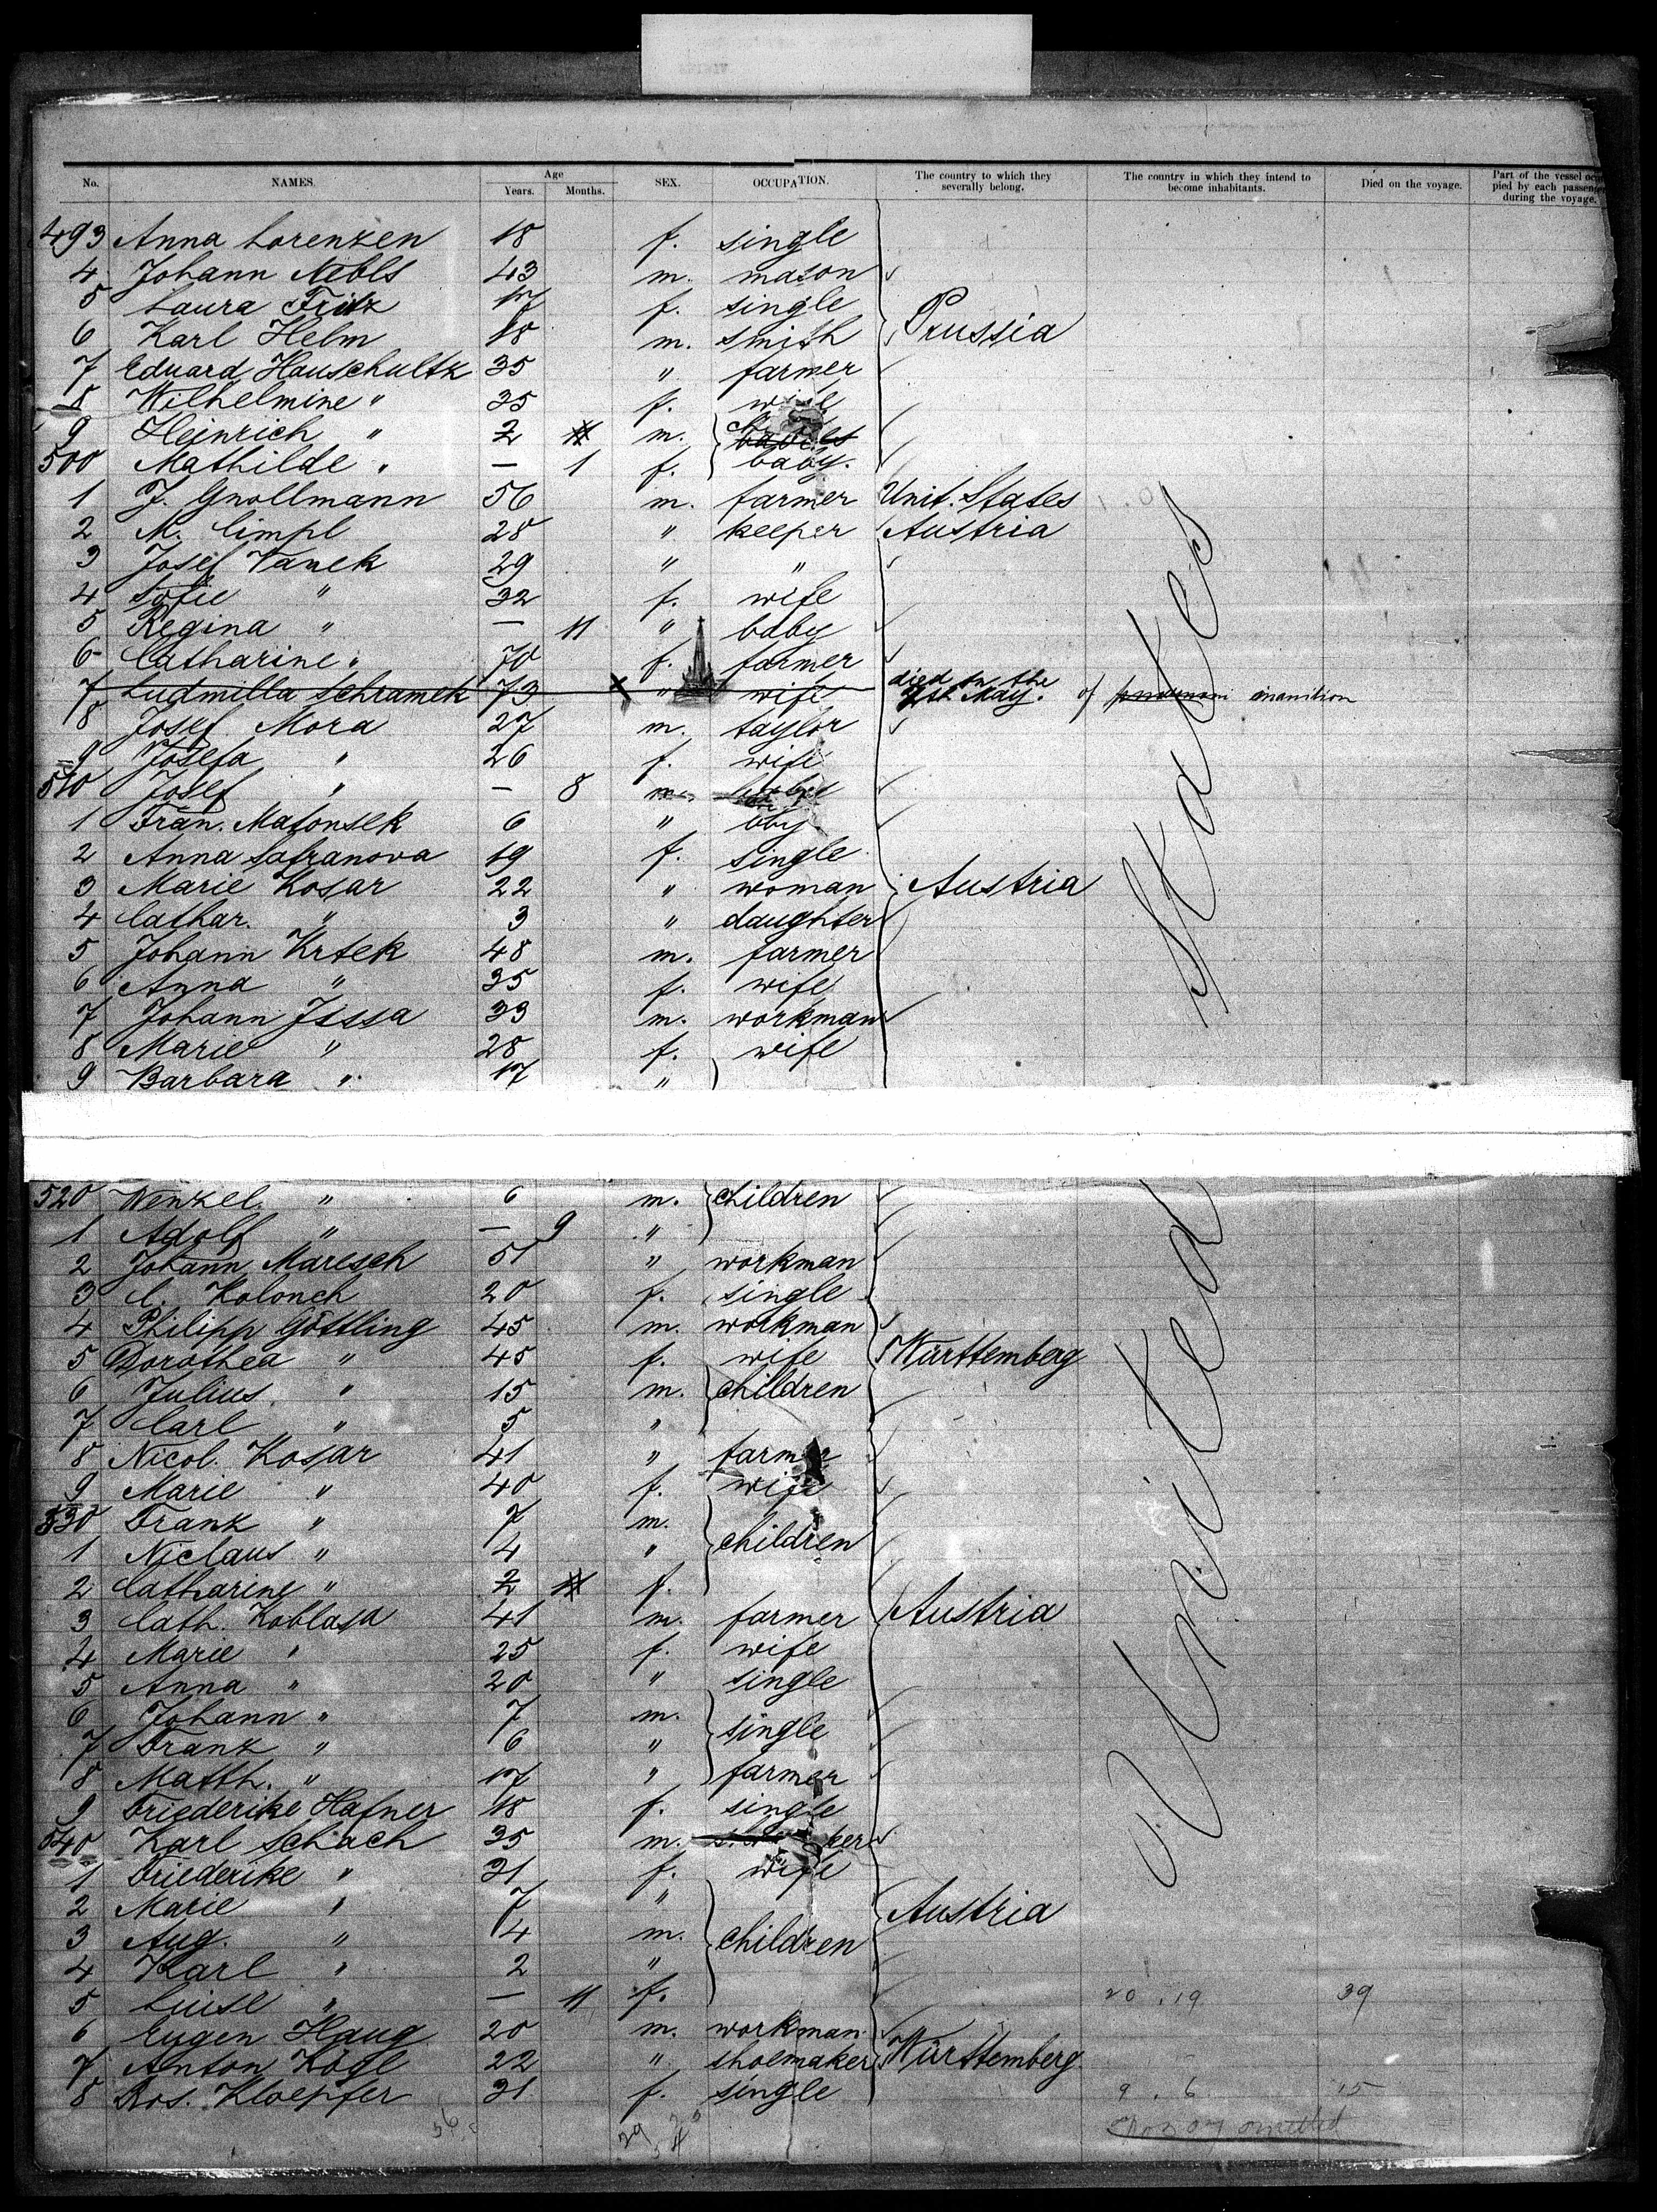 No. NAMES. Age Years. Months. SEX. OCCUPATION. The country to which they severally belong. The country in which they intend to become inhabitants. Died on the voyage. Part of the vessel occupied by each passenger during the voyage.
493 Anna Lorenzen 18 f. single
4 Johann Nebls 43 m. mason
5 Laura Fritz 17 f. single
6 Karl Helm 18 m. smith Prussia
7 Eduard Hauschultz 35 " farmer
8 Wilhelmine " 35 f. wife
9 Heinrich " 2 m.
500 Mathilde " — 1 f. baby.
1 J. Gnollmann 56 m. farmer Unit. States
2 M. Cimpl 28 " keeper Austria
3 Josef Vanek 29 " "
4 Sofie " 32 f. wife
5 Regina " — 11 " baby
6 Catharine " 70 f. farmer
7 Ludmilla Schramek 73 " wife died on the 21st May. of inanition
8 Josef Mora 27 m. taylor
9 Josefa " 26 f. wife
510 Josef " — 8 m.
1 Fran. Matonsek 6 " boy
2 Anna Safranova 19 f. single
3 Marie Kosar 22 " woman Austria
4 Cathar. " 3 " daughter
5 Johann Krtek 48 m. farmer
6 Anna " 35 f. wife
7 Johann Jssa 33 m. workman
8 Marie " 28 f. wife
9 Barbara " 17 "
520 Wenzel " 6 m. children
1 Adolf " — 9 "
2 Johann Maresch 51 " workman
3 C. Kolonch 20 f. single
4 Philipp Göttling 45 m. workman
5 Dorothea " 45 f. wife Württemberg
6 Julius " 15 m. children
7 Carl " 5 "
8 Nicol. Kosar 41 " farmer
9 Marie " 40 f. wife
530 Franz " 7 m.
1 Niclaus " 4 " children
2 Catharine " 2 f.
3 Cath. Koblasa 41 m. farmer Austria
4 Marie " 25 f. wife
5 Anna " 20 " single
6 Johann " 7 m.
7 Franz " 6 " single
8 Matth. " 17 " farmer
9 Friederike Hafner 18 f. single
540 Karl Schach 35 m.
1 Friederike " 31 f. wife
2 Marie " 7 " Austria
3 Aug. " 4 m. children
4 Karl " 2 "
5 Luise " — 11 f. 20 . 19 39
6 Eugen Haug 20 m. workman
7 Anton Kögl 22 " shoemaker Württemberg
8 Ros. Kloepfer 31 f. single 9 . 6 15
No 507 omitted
United States